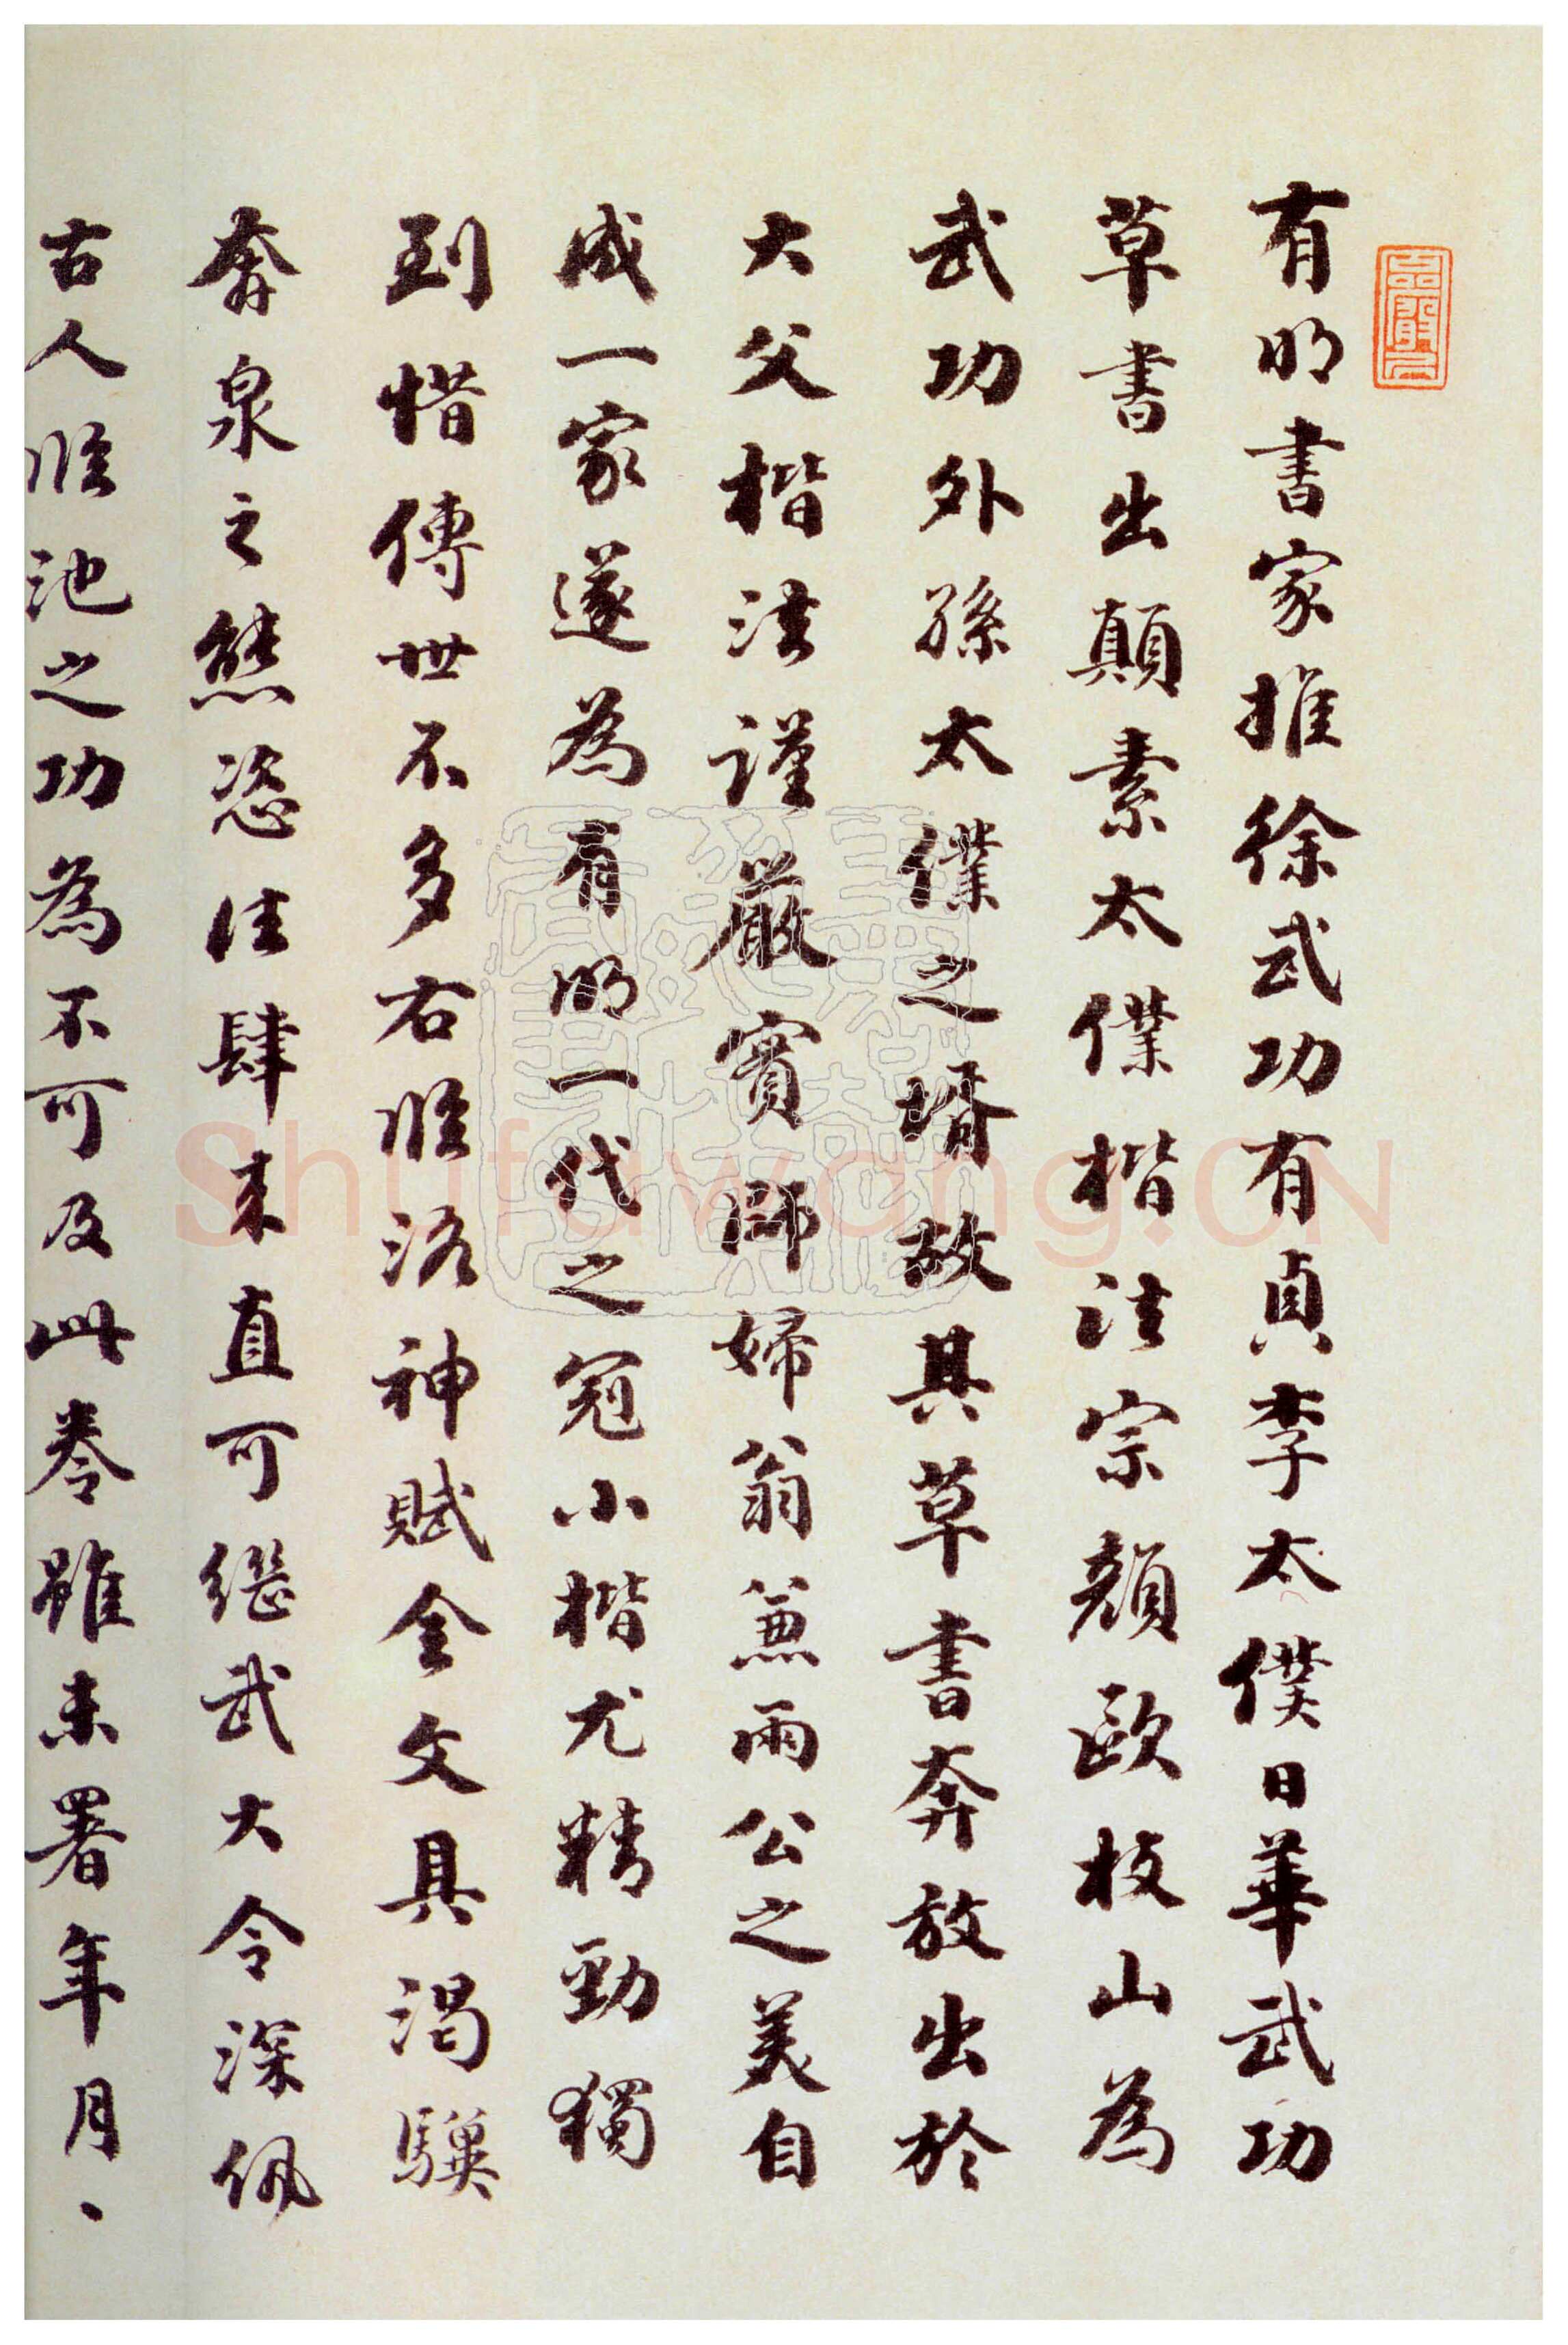 有明書家推徐武功有貞李太僕日華武功
草書出顛素太僕楷法宗顏歐枝山為
武功外孫太僕之壻故其草書奔放出於
大父楷法謹嚴實師婦翁兼兩公之美自
成一家遂為有明一代之冠小楷尤精勁獨
到惜傳世不多右臨洛神賦全文具渴驥
奔泉之態恣法肆末直可繼武大令深佩
古人臨池之功為不可及此卷雖未署年月、
Shufawang.CN